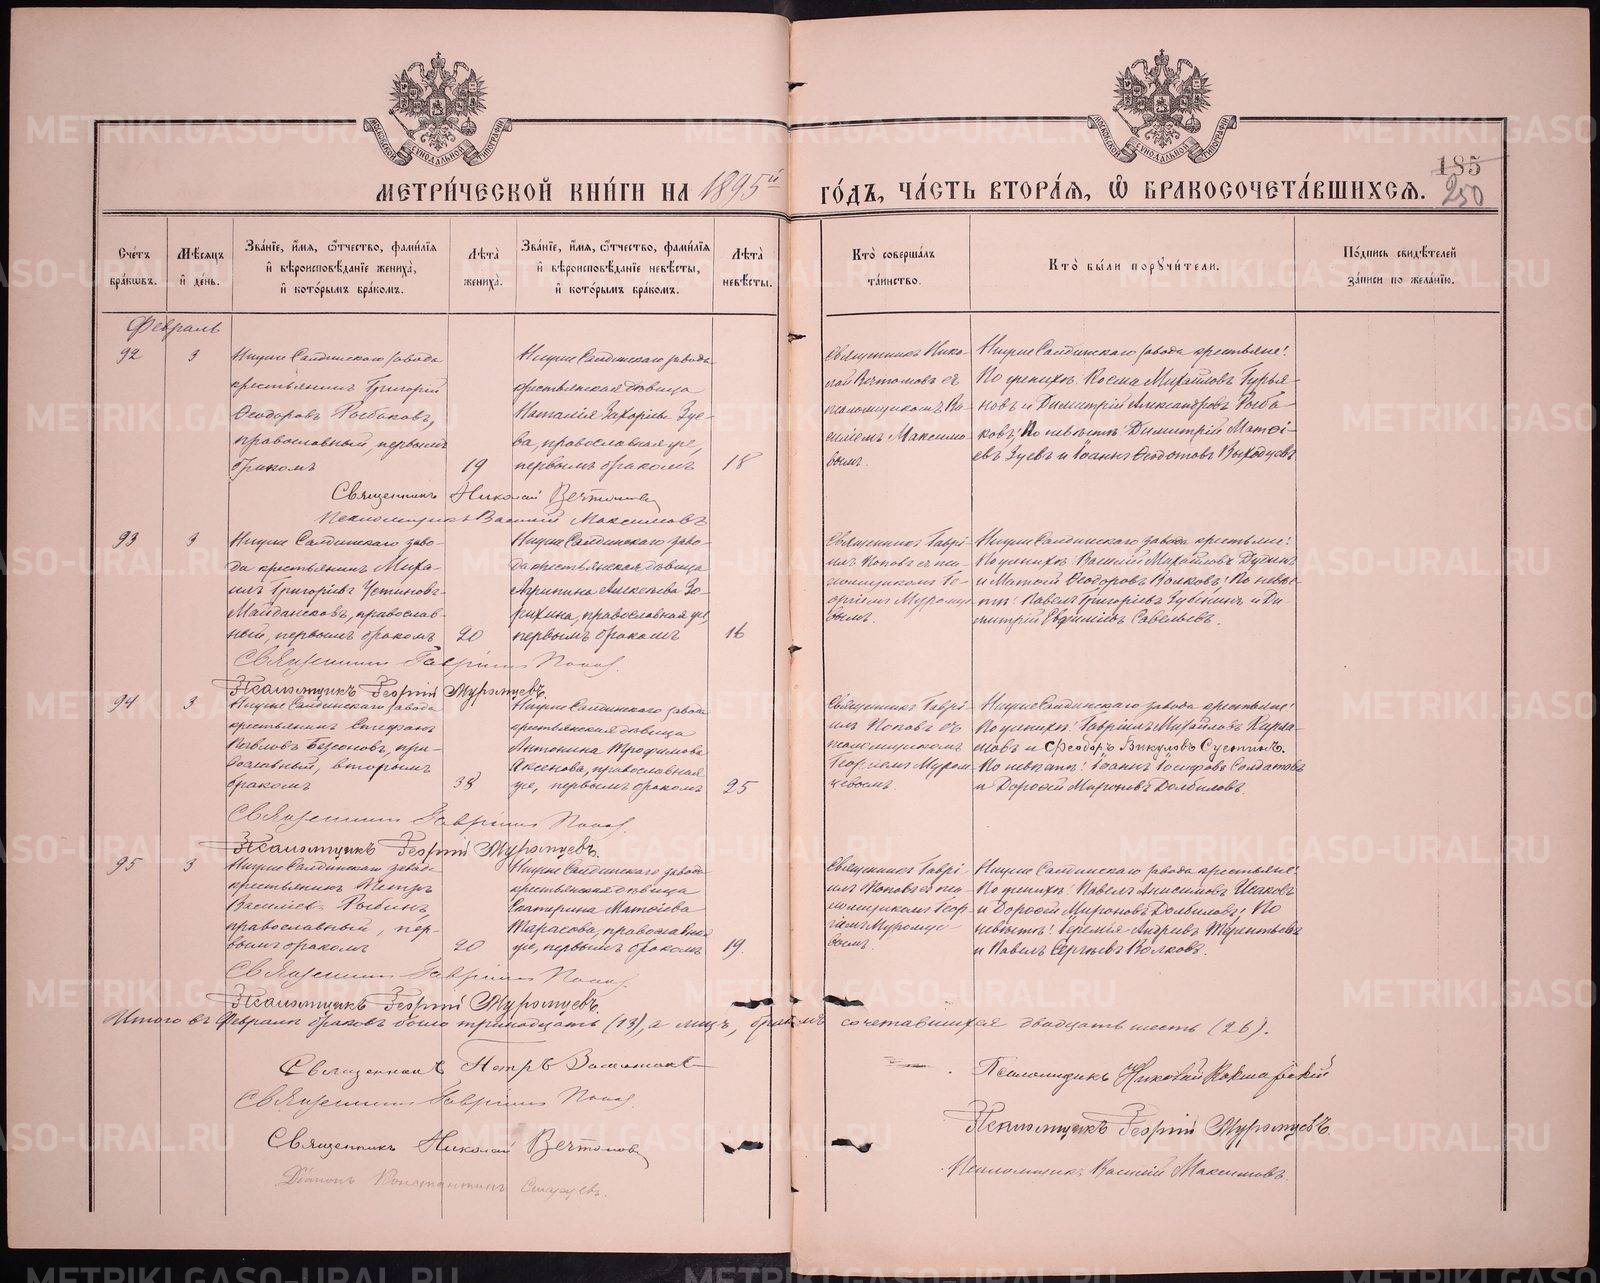 МЕТРИ́ЧЕСКОЙ КНИ́ГИ НА 1895й ГО́ДЪ, ЧА́СТЬ ВТОРА́Ѧ, Ѽ БРАКОСОЧЕТА́ВШИХСѦ.
185
250
МОСКОВСКОЙ СѴНОДАЛЬНОЙ ТИПОГРАФІИ
МОСКОВСКОЙ СѴНОДАЛЬНОЙ ТИПОГРАФІИ
Сче́тъ бра́кѡвъ.
Мѣ́сяцъ и҆ де́нь.
Зва́нїе, и҆́мѧ, ѻ҆́тчество, фамилїѧ и҆ вѣроисповѣ́данїе жениха̀, и҆ кото́рымъ бра́комъ.
Лѣ̀та жениха̀.
Зва́нїе, и҆́мѧ, ѻ҆́тчество, фамилїѧ и҆ вѣроисповѣ́данїе невѣ́сты, и҆ кото́рымъ бра́комъ.
Лѣ̀та невѣ́сты.
Кто̀ соверша́лъ та́инство.
Кто̀ бы́ли порꙋчи́тели.
По́дпись свидѣ́телей за́писи по жела́нїю.
Февраль
92
3
Нижне Салдинскаго завода
крестьянинъ Григорій
Ѳеодоровъ Рыбаковъ,
православный, первымъ
бракомъ
19
Нижне Салдинскаго завода
крестьянская дѣвица
Наталія Захаріева Зуе-
ва, православная же,
первымъ бракомъ
18
Священникъ Нико-
лай Вечтомовъ съ
псаломщикомъ Ва-
силіемъ Максимо-
вымъ.
Нижне Салдинскаго завода крестьяне:
По женихѣ: Косма Михайловъ Гурья-
новъ и Димитрій Александровъ Рыба-
ковъ; По невѣстѣ: Димитрій Матѳі-
евъ Зуевъ и Іоаннъ Ѳеодотовъ Выходцевъ
Священникъ Николай Вечтомовъ
Псаломщикъ Василій Максимовъ
93
3
Нижне Салдинскаго заво-
да крестьянинъ Миха-
илъ Григоріевъ Устиновъ-
Майдансковъ, православ-
ный, первымъ бракомъ
20
Нижне Салдинскаго заво-
да крестьянская дѣвица
Агрипина Алексѣева Зо-
рихина, православная же,
первымъ бракомъ
16
Священникъ Гаврі-
илъ Поповъ съ пса-
ломщикомъ Ге-
оргіемъ Муромце-
вымъ.
Нижне Салдинскаго завода крестьяне:
По женихѣ: Василій Михайловъ Дудинъ
и Матѳій Ѳеодоровъ Волковъ; По невѣс-
тѣ: Павелъ Григоріевъ Зубенинъ и Ди-
митрій Евфиміевъ Савельевъ.
Священникъ Гавріилъ Попов.
Псаломщикъ Георгій Муромцевъ.
94
3
Нижне Салдинскаго завода
крестьянинъ Стефанъ
Павловъ Безсоновъ, пра-
вославный, вторымъ
бракомъ
38
Нижне Салдинскаго завода
крестьянская дѣвица
Антонина Трофимова
Аксенова, православная
же, первымъ бракомъ
25
Священникъ Гаврі-
илъ Поповъ съ
псаломщикомъ
Георгіемъ Муром-
цевымъ.
Нижне Салдинскаго завода крестьяне:
По женихѣ: Гавріилъ Михайловъ
и Феодоръ Викуловъ
По невѣстѣ: Іоаннъ Іосифовъ Солдатовъ
и Дороѳей Мироновъ Долбиловъ.
Священникъ Гавріилъ Попов.
Псаломщикъ Георгій Муромцевъ.
95
3
Нижне Салдинскаго завода
крестьянинъ Петръ
Василіевъ Рыбинъ
православный, пер-
вымъ бракомъ
20
Нижне Салдинскаго завода
крестьянская дѣвица
Екатерина Матѳіева
Тарасова, православная
же, первымъ бракомъ
19.
Священникъ Гаврі-
илъ Поповъ съ пса-
ломщикомъ Геор-
гіемъ Муромце-
вымъ.
Нижне Салдинскаго завода крестьяне:
По женихѣ: Павелъ Анисимовъ Исаковъ
и Дороѳей Мироновъ Долбиловъ; По
невѣстѣ: Іеремія Андреевъ Терентьевъ
и Павелъ Сергѣевъ Волковъ.
Священникъ Гавріилъ Попов.
Псаломщикъ Георгій Муромцевъ.
Итого въ Февралѣ браковъ было тринадцать (13), а лицъ, бракомъ сочетавшихся двадцать шесть (26).
Священникъ Петръ
Священникъ Гавріилъ Попов.
Священникъ Николай Вечтомовъ
Діаконъ Константинъ
Псаломщикъ Николай
Псаломщикъ Георгій Муромцевъ.
Псаломщикъ Василій Максимовъ.
METRIKI.GASO-URAL.RU